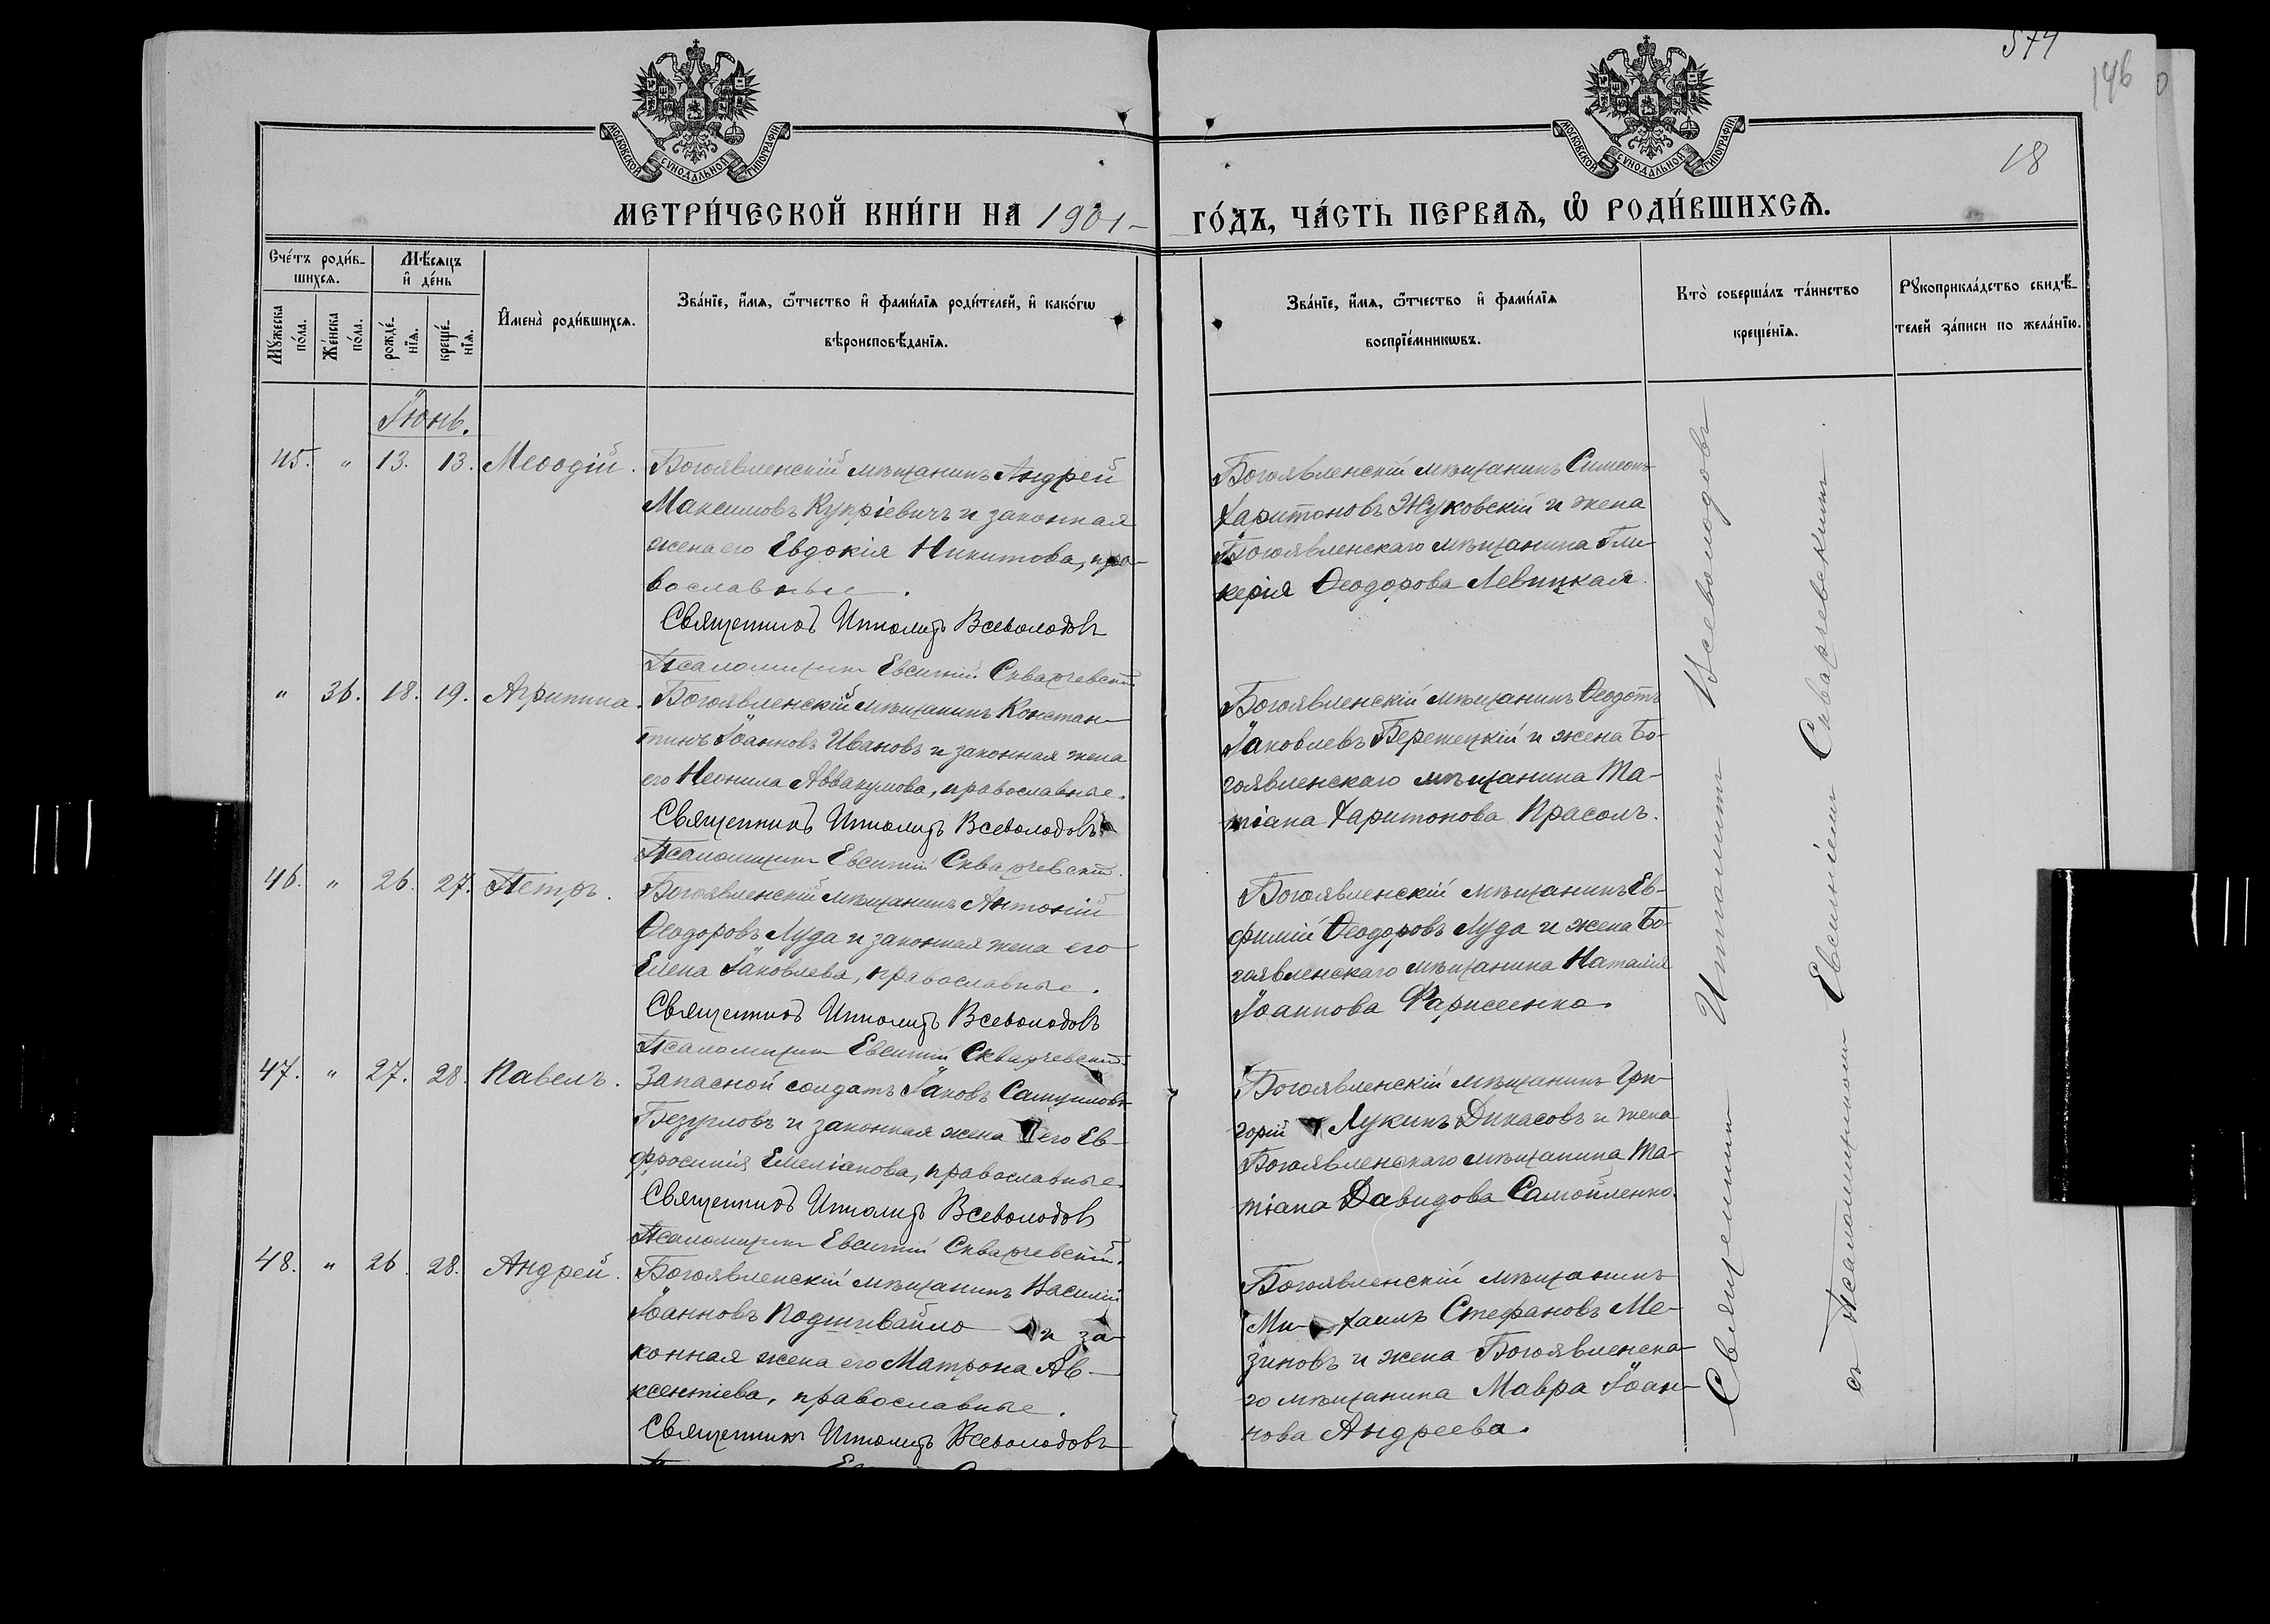 574
146
18
МОСКОВСКОЙ СѴНОДАЛЬНОЙ ТИПОГРАФІИ
МОСКОВСКОЙ СѴНОДАЛЬНОЙ ТИПОГРАФІИ
МЕТРИ́ЧЕСКОЙ КНИ́ГИ НА 1901 –
ГО́ДЪ, ЧА́СТЬ ПЕРВАѦ, Ѡ҆ РОДИ́ВШИХСѦ.
Счéтъ роди́в-
шихсѧ.
Мꙋ́жеска по́ла.
Же́нска по́ла.
Мѣ́сѧцъ
и҆ де́нь
рожде́-
нїѧ.
креще́-
нїѧ.
И҆мена̀ роди́вшихсѧ.
Зва́нїе, и҆́мѧ, ѻ҆́тчество и҆ фами́лїѧ роди́телей, и҆ како́гѡ
вѣроисповѣ́данїѧ.
Зва́нїе, и҆́мѧ, ѻ҆́тчество и҆ фами́лїѧ
воспрїе́мникѡвъ.
Кто̀ соверша́лъ та́инство
креще́нїѧ.
Рꙋкоприкла́дство свидѣ́-
телей за́писи по жела́нїю.
Іюнь.
45. " 13. 13. Меѳодій.
Богоявленскій мѣщанинъ Андрей
Максимовъ Купріевичъ и законная
жена его Евдокія Никитова, пра-
вославные.
Священникъ Ипполитъ Всеволодовъ
Псаломщикъ Евсигній Скварчевскій
Богоявленскій мѣщанинъ Симеонъ
Харитоновъ Жуковскій и жена
Богоявленскаго мѣщанина Гли-
керія Ѳеодорова Левицкая.
" 36. 18. 19. Агрипина.
Богоявленскій мѣщанинъ Констан-
тинъ Іоанновъ Ивановъ и законная жена
его Неонила Аввакумова, православные.
Священникъ Ипполитъ Всеволодовъ
Псаломщикъ Евсигній Скварчевскій.
Богоявленскій мѣщанинъ Ѳеодотъ
Іаковлевъ Бережецкій и жена Бо-
гоявленскаго мѣщанина Та-
тіана Харитонова Прасолъ.
46. " 26. 27. Петръ.
Богоявленскій мѣщанинъ Антоній
Ѳеодоровъ Луда и законная жена его
Елена Іаковлева, православные.
Священникъ Ипполитъ Всеволодовъ
Псаломщикъ Евсигній Скварчевскій
Богоявленскій мѣщанинъ Ев-
фимій Ѳеодоровъ Луда и жена Бо-
гоявленскаго мѣщанина Наталія
Іоаннова Фарисеенко.
47. " 27. 28. Павелъ.
Запасной солдатъ Іаковъ Самуиловъ
Безугловъ и законная жена его Ев-
фросинія Емеліанова, православные.
Священникъ Ипполитъ Всеволодовъ
Псаломщикъ Евсигній Скварчевскій.
Богоявленскій мѣщанинъ Гри-
горій Лукинъ Дикасовъ и жена
Богоявленскаго мѣщанина Та-
тіана Давидова Самойленко.
48. " 26. 28. Андрей.
Богоявленскій мѣщанинъ Василій
Іоанновъ Подшивайло и за-
конная жена его Матрона Ав-
ксентіева, православные.
Священникъ Ипполитъ Всеволодовъ
Богоявленскій мѣщанинъ
Ми-хаилъ Стефановъ Ме-
зиновъ и жена Богоявленска-
го мѣщанина Мавра Іоан-
нова Андреева.
Священникъ Ипполитъ Всеволодовъ
съ Псаломщикомъ Евсигніемъ Скварчевскимъ.